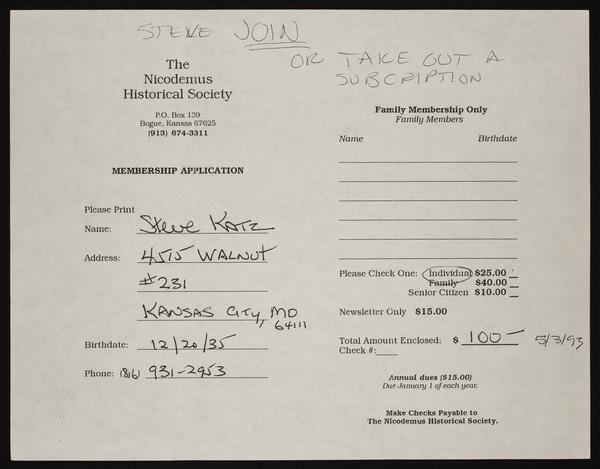 STEVE JOIN
OR TAKE OUT A
SUBCRIPTION
The
Nicodemus
Historical Society
P.O. Box 139
Bogue, Kansas 67625
(913) 674-3311
MEMBERSHIP APPLICATION
Please Print
Name: Steve KATZ
Address: 4515 WALNUT
#231
KANSAS CITY, MO
64111
Birthdate: 12/20/35
Phone: (816) 931-2953
Family Membership Only
Family Members
Name Birthdate
Please Check One: Individual $25.00
Family $40.00
Senior Citizen $10.00
Newsletter Only $15.00
Total Amount Enclosed: $ 100- 5/3/93
Check #:
Annual dues ($15.00)
Due January 1 of each year.
Make Checks Payable to
The Nicodemus Historical Society.